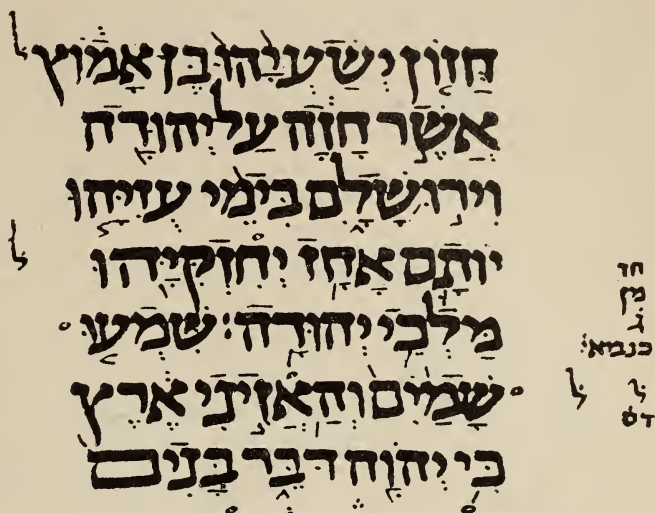 חֲזוֹן֙ יְשַֽׁעְיָ֣הוּ בֶן־אָמ֔וֹץ
אֲשֶׁ֣ר חָזָ֔ה עַל־יְהוּדָ֖ה
וִירֽוּשָׁלָ֑͏ִם בִּימֵ֨י עֻזִּיָּ֧הוּ
יוֹתָ֛ם אָחָ֥ז יְחִזְקִיָּ֖הוּ
מַלְכֵ֥י יְהוּדָֽה׃ שִׁמְע֤וּ
שָׁמַ֙יִם֙ וְהַאֲזִ֣ינִי אֶ֔רֶץ
כִּ֥י יְהוָ֖ה דִּבֵּ֑ר בָּנִים֙
ל
ל
חד
מן
ג̇